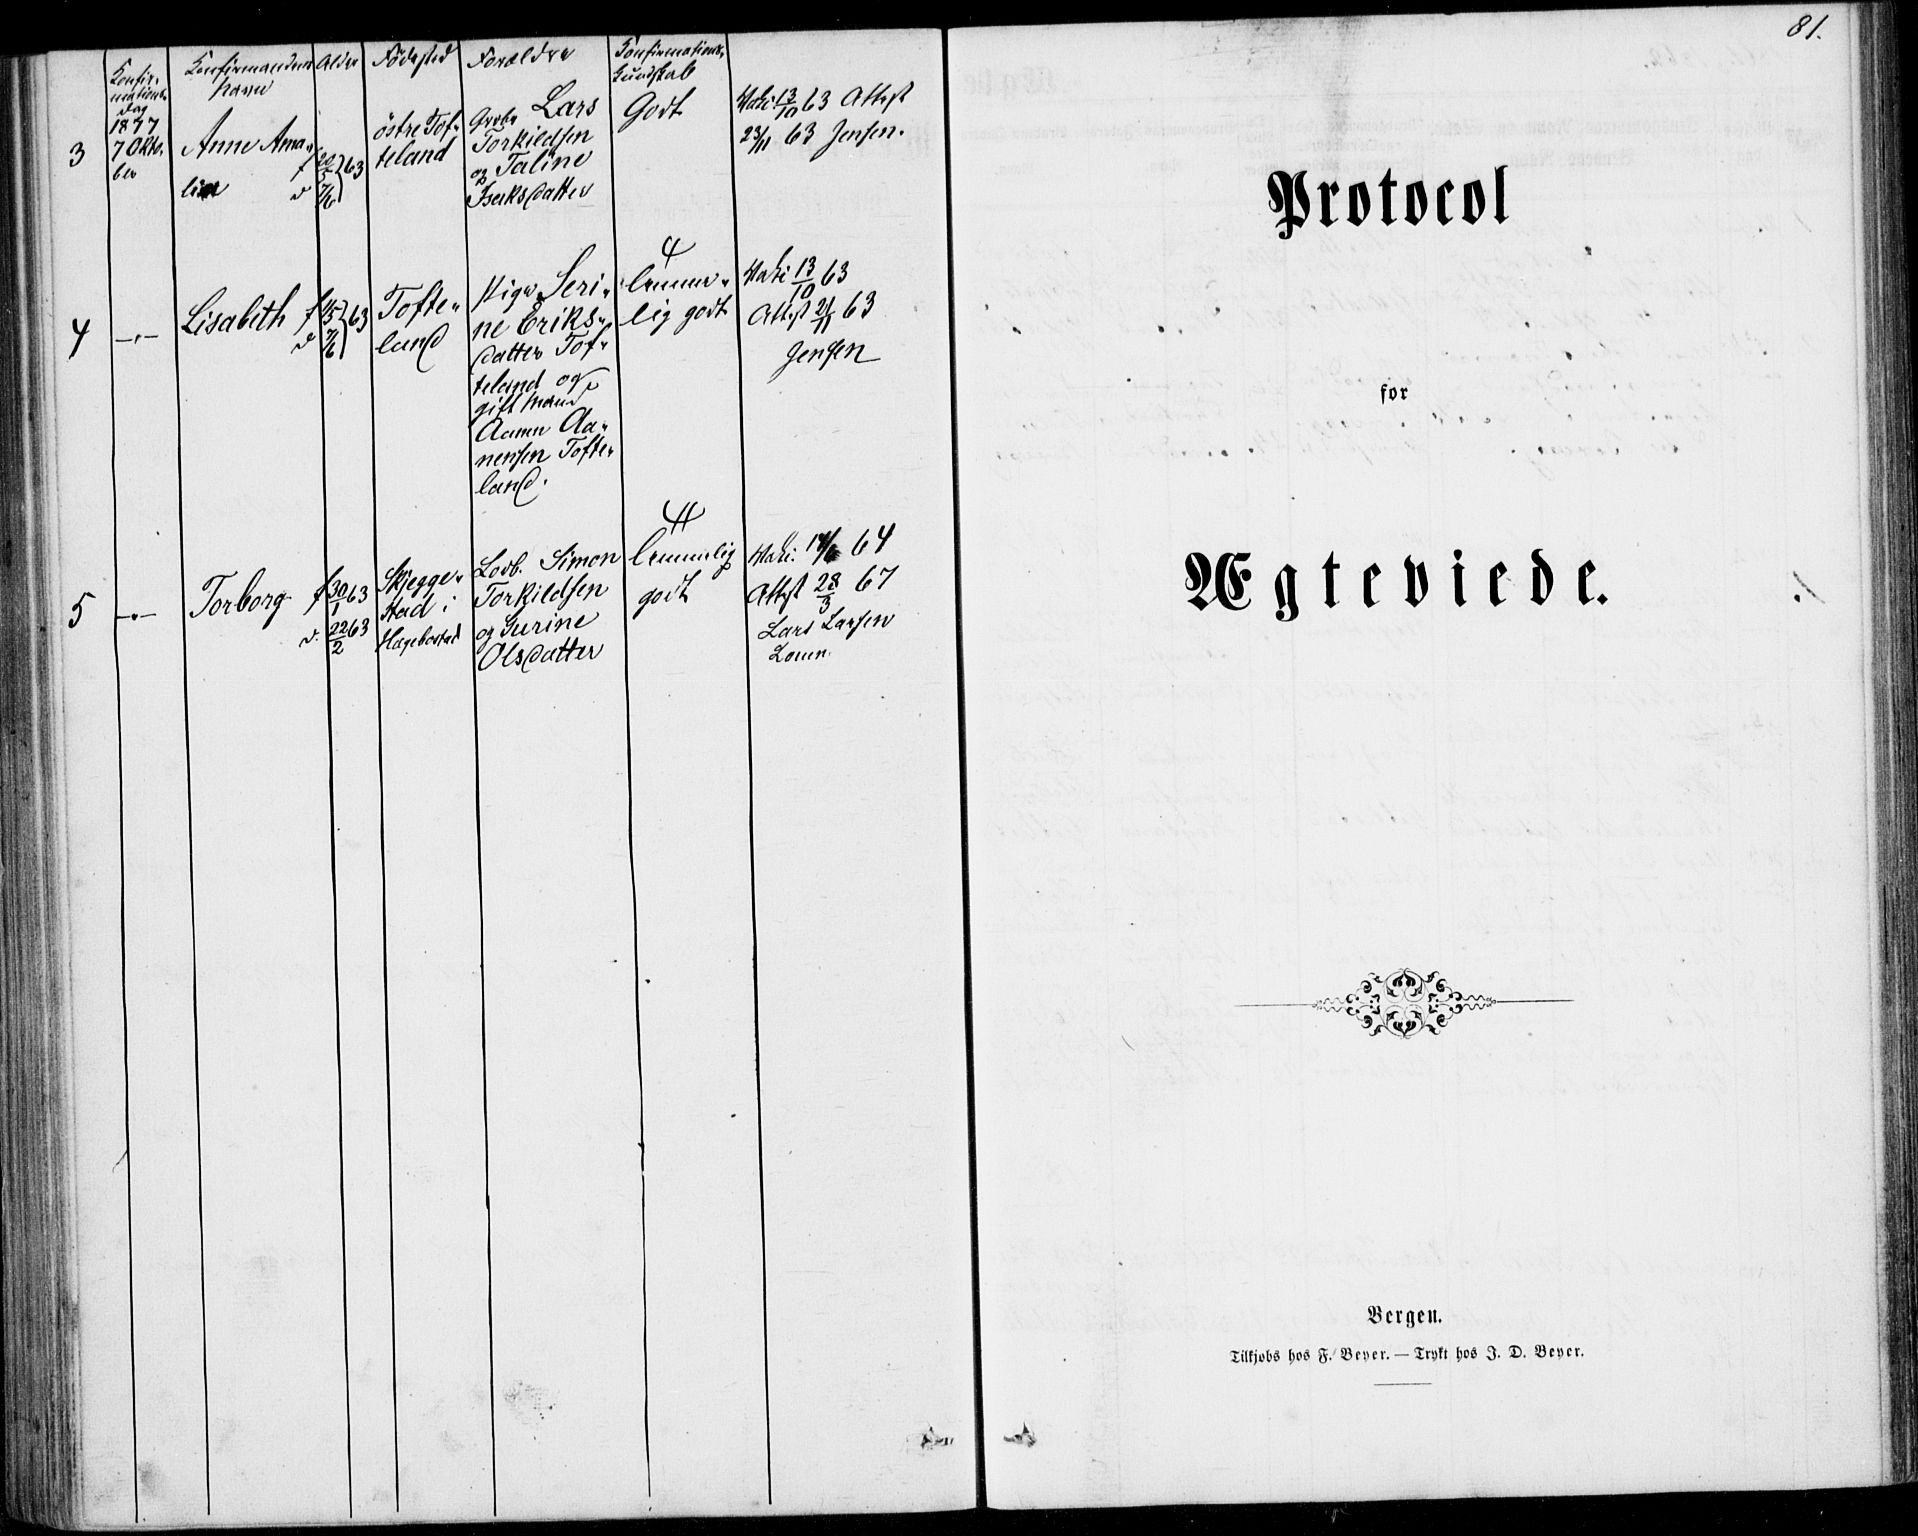 Konfir-
mations-
dag
Konfirmandens
Navn
Alder
Fødested
Forældre
Konfirmations-
Kundskab
3
1877
7 Okto-
ber
Anne Ama-
lia
f 22/5
d 7/6 } 63
östre Tof-
teland
Grbr. Lars
Torkildsen
og Taline
Iseksdatter
Godt
Vakc. 13/10 63 Attest
23/11 63 Jensen.
4
—"—
Lisabeth
f 4/5
d 7/6 } 63
Tofte-
land
Pige Seri-
ne Eriks-
datter Tof-
teland og
gift Mand
Aanen Aa-
nensen Tofte-
land.
4
Temme-
lig godt
Vakc. 13/10 63
Attest 21/11 63
Jensen
5
—"—
Torborg
f 30/1 63
d. 22/2 63
Skjegge-
stad i
Hægebostad
Lovb. Simon
Torkildsen
og Gurine
Olsdatter
Temmelig
godt
Vakc. 14/6 64
Attest 28/3 67
Lars Larsen
81.
Protocol
for
Ægteviede.
Bergen.
Tilkjøbs hos F. Beyer. — Trykt hos J. D. Beyer.